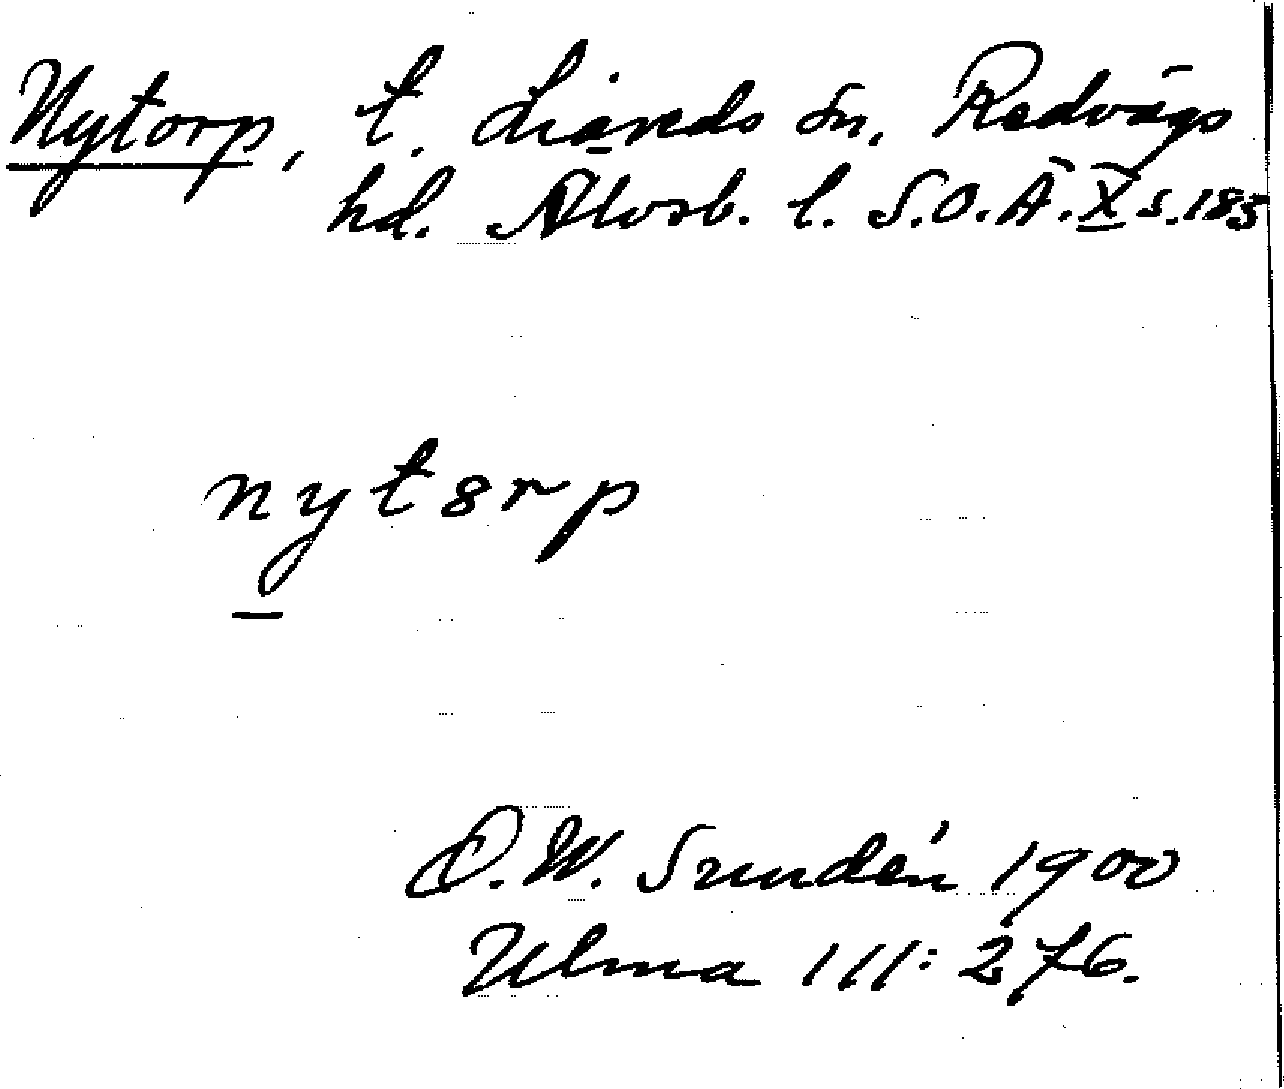 Nytorp, t. Liareds sn, Redvägs
hd. Älvsb. l. S.O.Ä. X s. 185
nyt8rp
D. W. Sundén 1900
Ulma 111:276.